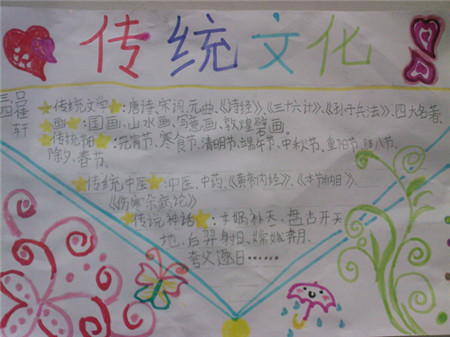 传统文化
三(2)
四 程 轩
传统文学:唐诗、宋词、元曲、《诗经》、《三十六计》、《孙子兵法》、四大名著、
画:国画、山水画、写意画、敦煌壁画。
传统节:元宵节、寒食节、清明节、端午节、中秋节、重阳节、腊八节、
除夕、春节。
传统中医:中医、中药、《黄帝内经》、《本草纲目》、
《伤寒杂病论》
传统神话:女娲补天、盘古开天
地、后羿射日、嫦娥奔月、
夸父逐日……